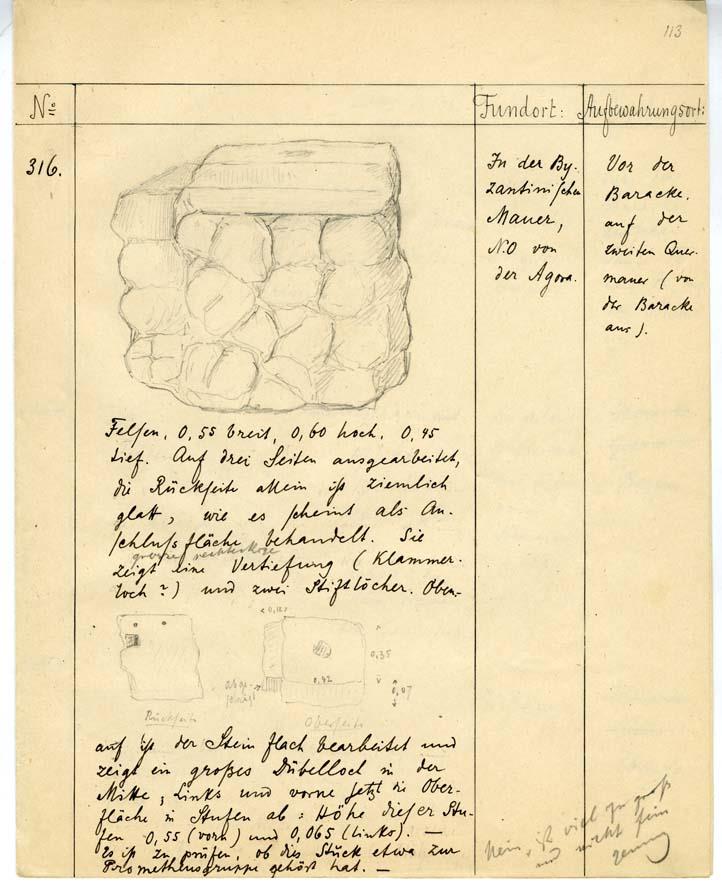 113
No Fundort: Aufbewahrungsort:
316.
In der By-
zantinischen
Mauer,
N.O von
der Agora.
Vor der
Baracke.
auf der
zweiten Quer-
mauer (von
der Baracke
aus).
Felsen, 0,55 breit, 0,60 hoch, 0,45
tief. Auf drei Seiten ausgearbeitet,
die Rückseite allein ist ziemlich
glatt, wie es scheint als An-
schlussfläche behandelt. Sie
grosse rechteckige
zeigt eine Vertiefung (Klammer-
loch?) und zwei Stiftlöcher. Oben-
0,35
0,42
0,07
abge-
schrägt
Rückseite
Oberseite
auf ist der Stein flach bearbeitet und
zeigt ein großes Dübelloch in der
Mitte; Links und vorne setzt die Ober-
fläche in Stufen ab: Höhe dieser Stu-
fen 0,55 (vorn) und 0,065 (links). —
Es ist zu prüfen, ob dies Stück etwa zur
Prometheusgruppe gehört hat. —
Nein, ist viel zu groß
und nicht fein
genug